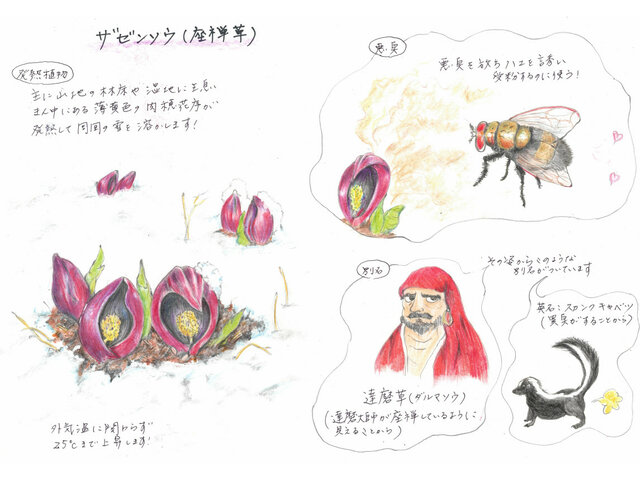 ザゼンソウ(座禅草)
発熱植物
主に山地の林床や湿地に生息
まん中にある薄黄色の肉穂花序が
発熱して周囲の雪を溶かします!
外気温に関わらず
25℃まで上昇します!
悪臭
悪臭を放ちハエを誘い
受粉するのに使う!
別名
達磨草(ダルマソウ)
(達磨大師が座禅しているように
見えることから)
その姿からこのような
別名がついています
英名:スカンクキャベツ
(異臭がすることから)